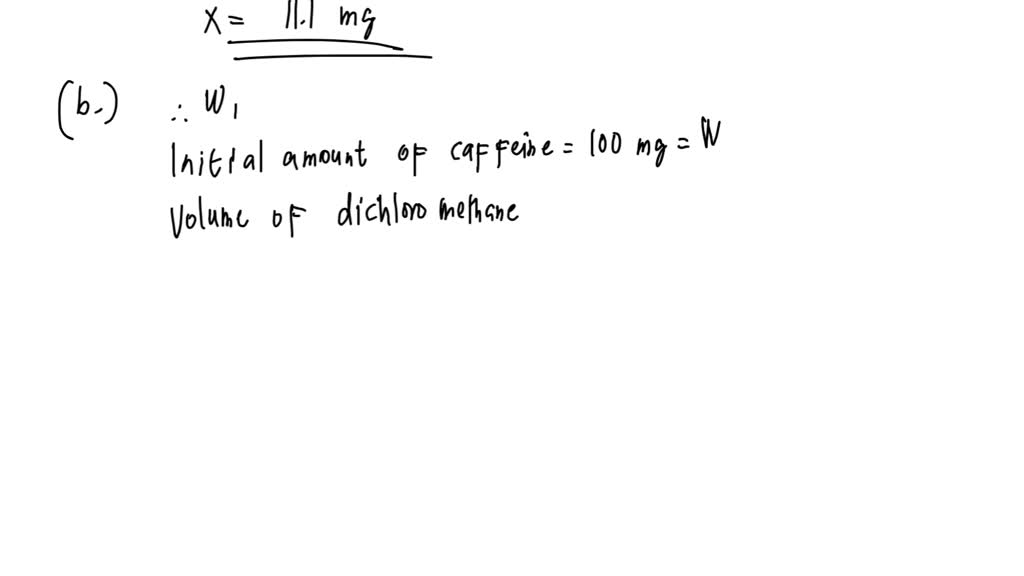 X = 11.1 mg
(b.) ∴ W1
Initial amount of caffeine = 100 mg = W
Volume of dichloromethane